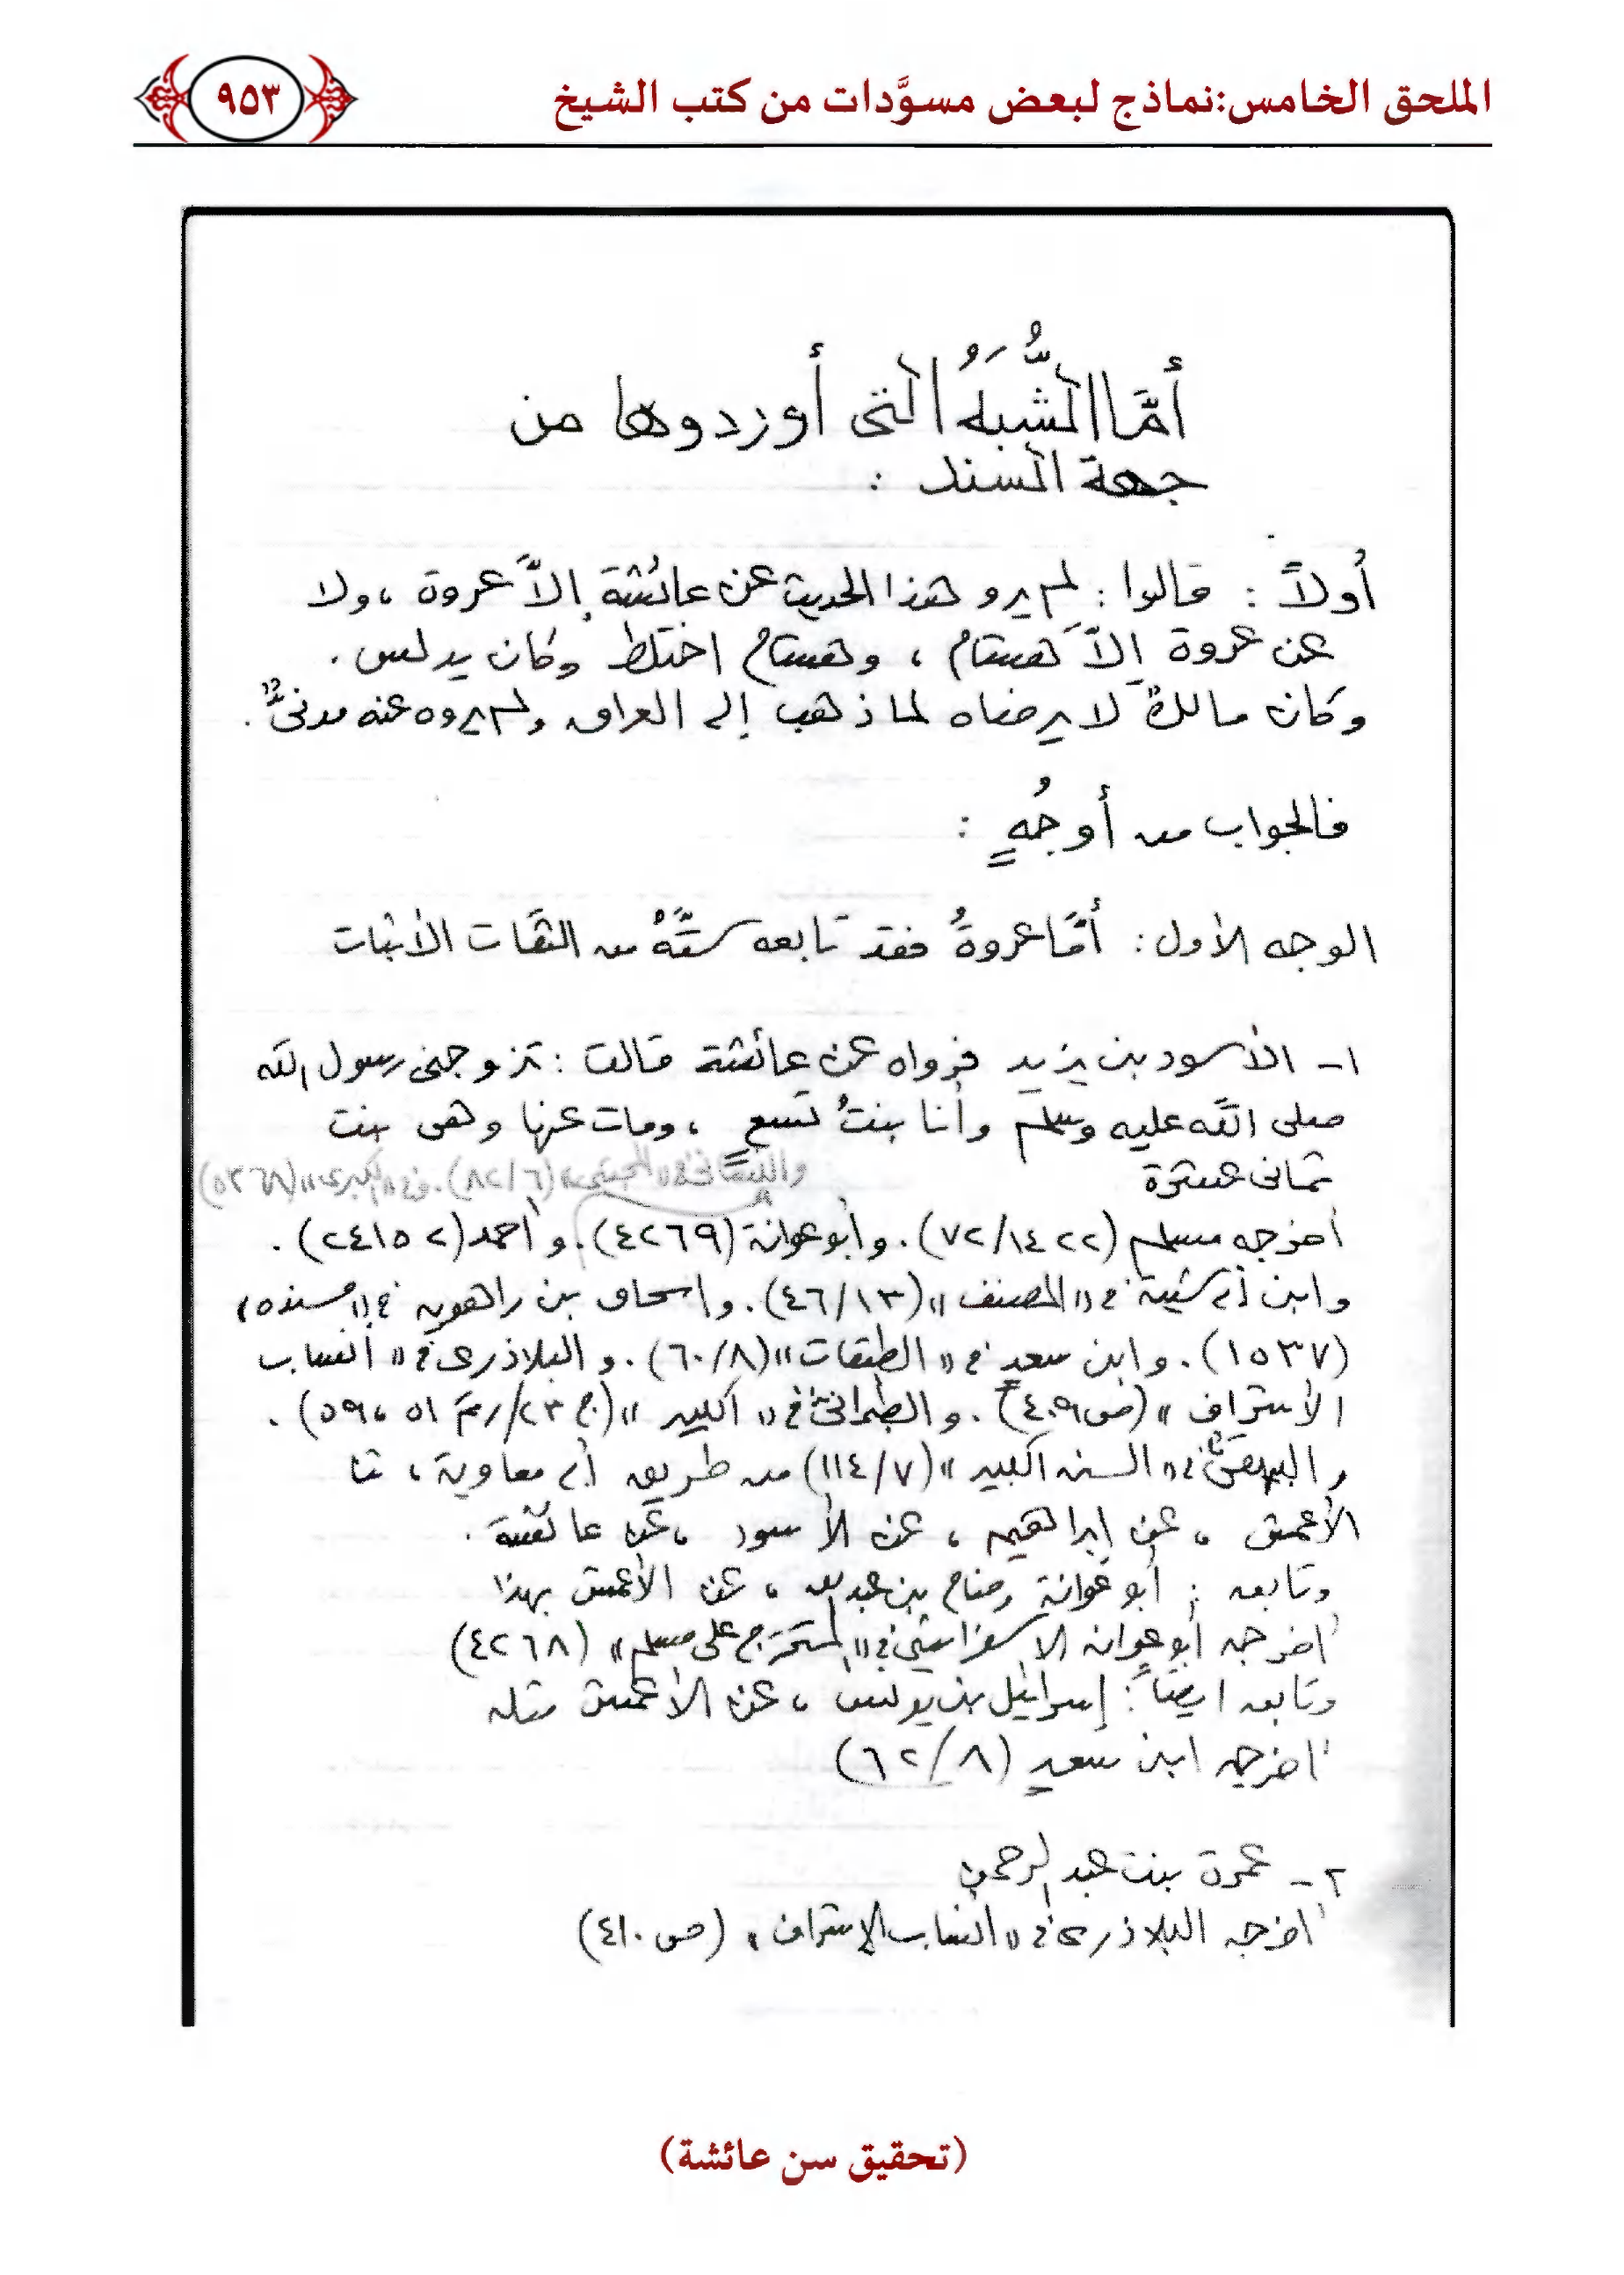 الملحق الخامس:نماذج لبعض مسوَّدات من كتب الشيخ
٩٥٣
أمَّا الشُّبَهُ التى أوردوها من
جهة السند :
أولاً : قالوا : لم يرو هذا الحديث عن عائشة إلاَّ عروة ، ولا
عن عروة إلاَّ هشام ، وهشام اختلط وكان يدلس .
وكان مالكٌ لا يرضاه لما ذهب إلى العراق ولم يروه عنه مدنىٌّ .
فالجواب من أوجُهٍ :
الوجه الأول : أمَّا عروةُ فقد تابعه ستَّةٌ من الثقات الأثبات
١- الأسود بن يزيد فرواه عن عائشة قالت : تزوجنى رسول الله
صلى الله عليه وسلم وأنا بنتُ تسعٍ ، ومات عنها وهى بنت
ثمانى عشرة
والنسائى فى «المجتبى» (٦/٨٢) . وفى «الكبرى»
أخرجه مسلم (١٤٢٢/٧٢) . وأبو عوانة (٤٢٦٩) . وأحمد (٢٤١٥٢) .
وابن أبى شيبة فى «المصنف» (١٣/٤٦) . وإسحاق بن راهويه فى «مسنده»
(١٥٣٧) . وابن سعدٍ فى «الطبقات» (٨/٦٠) . والبلاذرى فى «أنساب
الأشراف» (ص٤٠٩) . والطبرانىُّ فى «الكبير» (ج ٢٣/رقم ٥١ ، ٥٩) .
والبيهقىُّ فى «السنن الكبير» (٧/١١٤) من طريق أبى معاوية ، ثنا
الأعمش ، عن إبراهيم ، عن الأسود ، عن عائشة .
وتابعه : أبو عوانة وضاح بن عبد الله ، عن الأعمش بهذا
أخرجه أبو عوانة الاسفرائينى فى «المستخرج على مسلم» (٤٢٦٨)
وتابعه أيضاً : إسرائيل بن يونس ، عن الأعمش مثله
أخرجه ابن سعدٍ (٨/٦٢)
٢- عمرة بنت عبد الرحمن
أخرجه البلاذرى فى «أنساب الأشراف» (ص ٤١٠)
(تحقيق سن عائشة)